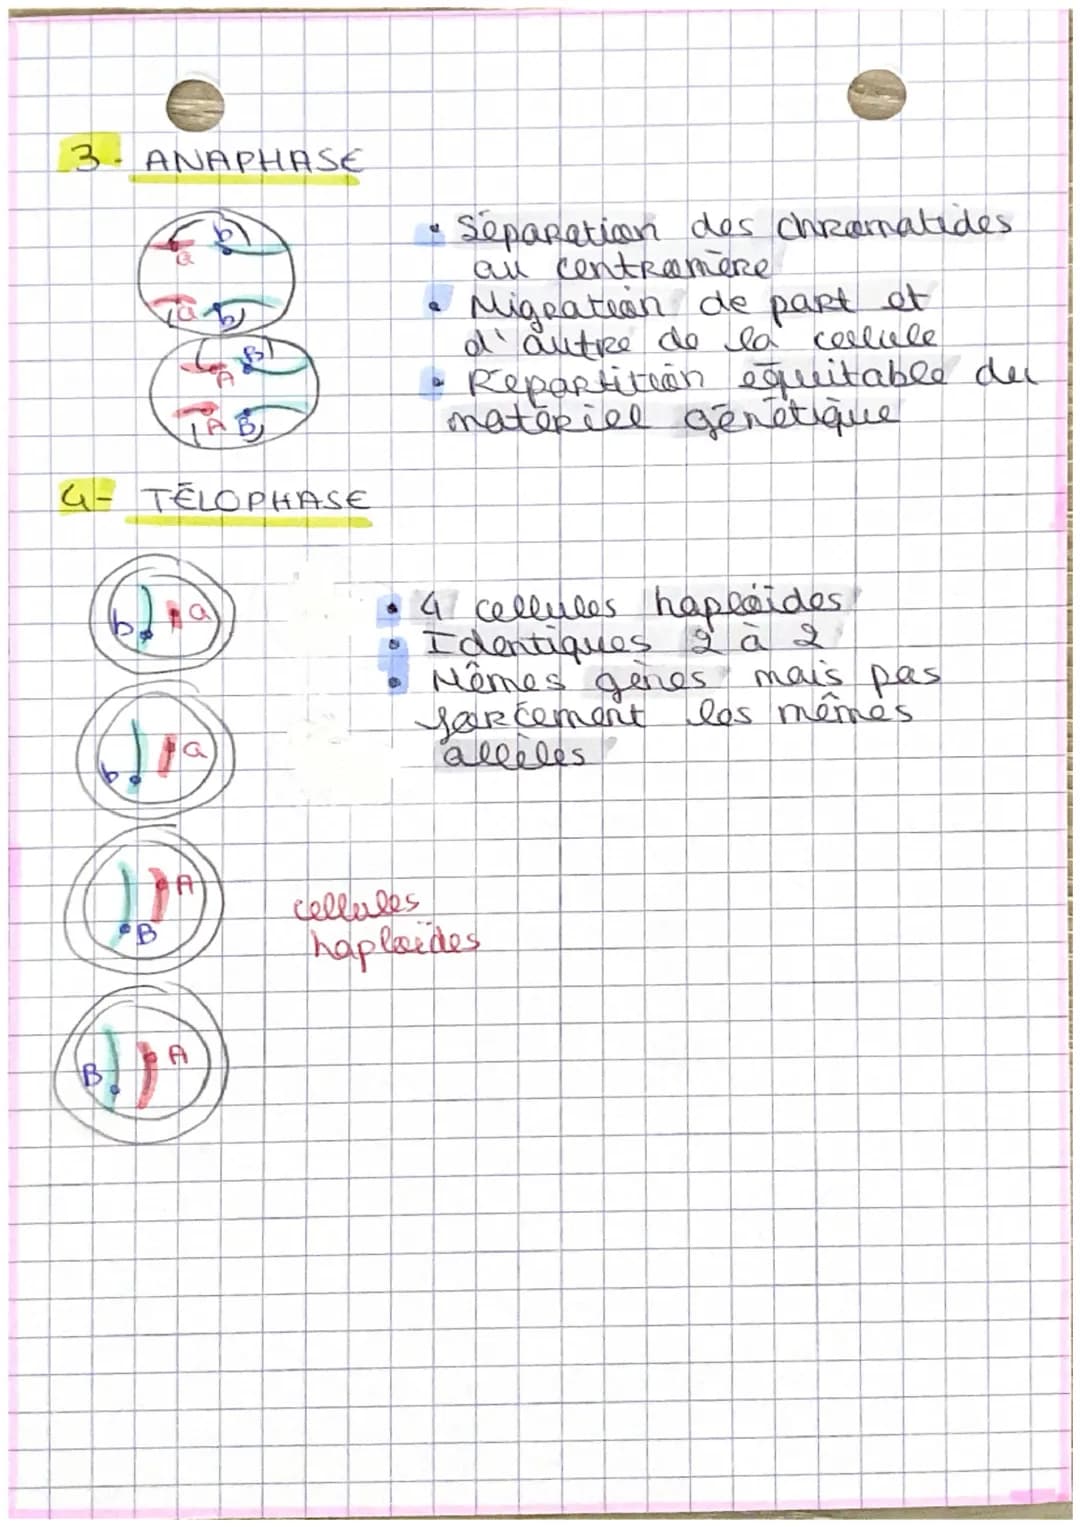 3- ANAPHASE
b
a
a b
B
A
A B
• Séparation des chromatides
au centromère
• Migration de part et
d'autre de la cellule
• Répartition équitable du
matériel génétique
4- TÉLOPHASE
b a
b a
A
B
B A
• 4 cellules haploïdes
• Identiques 2 à 2
• Mêmes gènes mais pas
forcement les mêmes
allèles
cellules
haploïdes